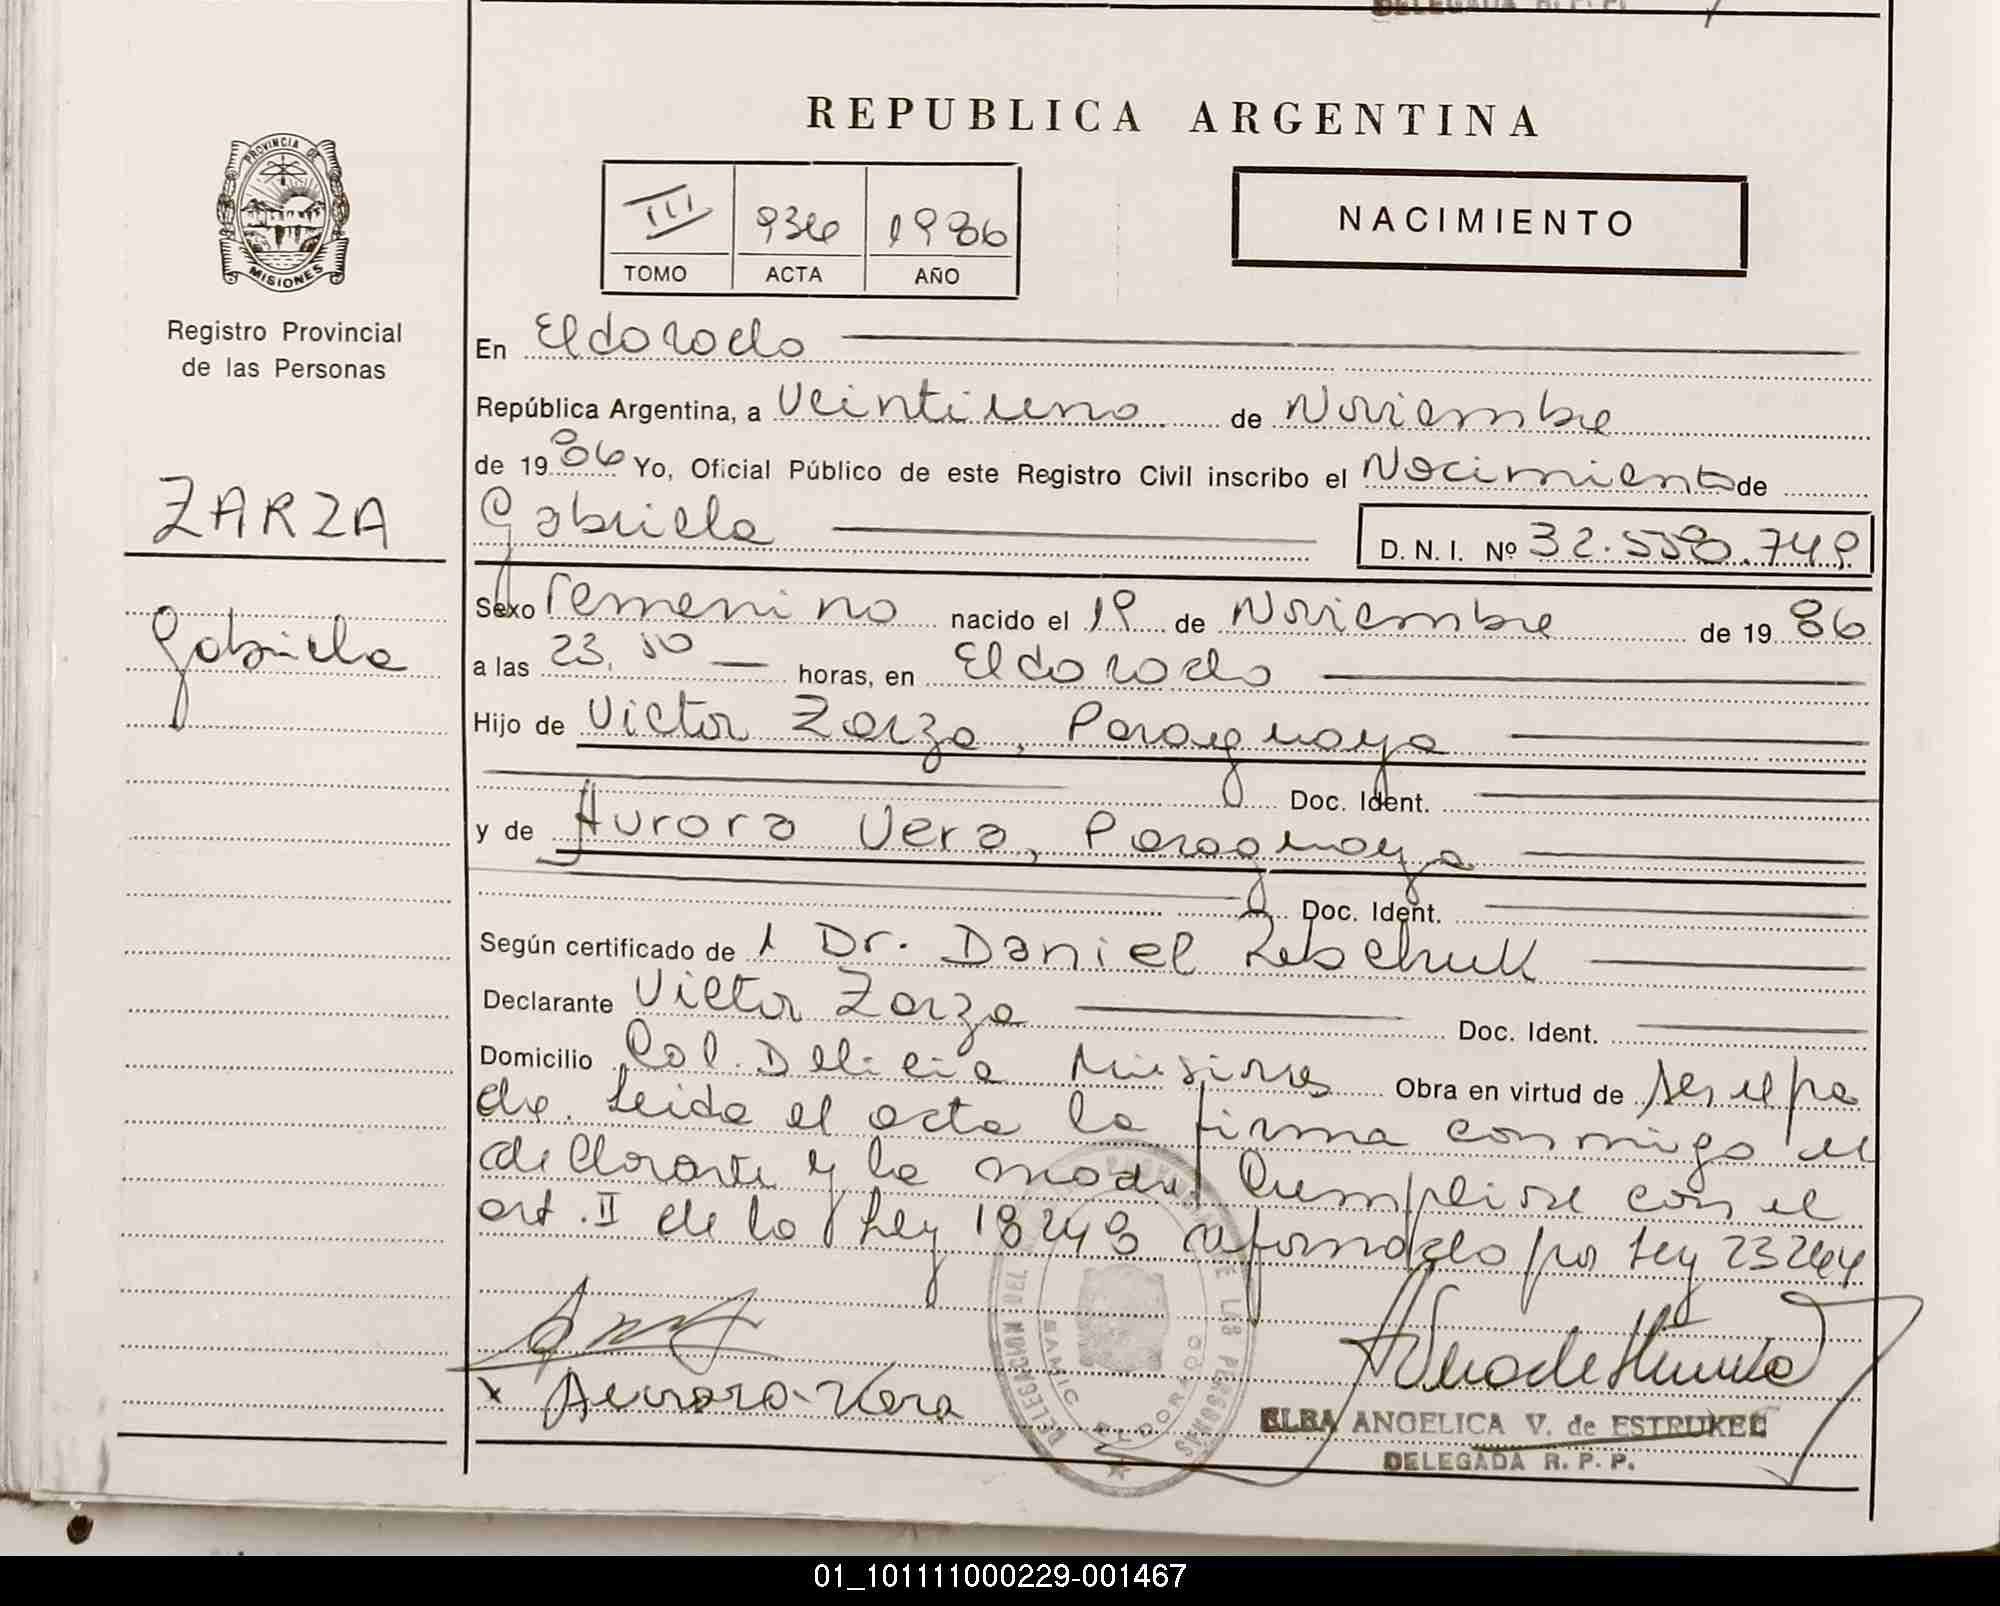 DELEGADA R. P. P.
REPUBLICA ARGENTINA
PROVINCIA DE
MISIONES
Registro Provincial
de las Personas
III 936 1986
TOMO ACTA AÑO
NACIMIENTO
En Eldorado
República Argentina, a Veintiuno de Noviembre
de 1986 Yo, Oficial Público de este Registro Civil inscribo el Nacimiento de
ZARZA
Gabriela
Gabriela
D. N. I. Nº 32.558.749
Sexo Femenino nacido el 19 de Noviembre de 1986
a las 23,50 horas, en Eldorado
Hijo de Victor Zarza, Paraguaya
Doc. Ident.
y de Aurora Vera, Paraguaya
Doc. Ident.
Según certificado de l Dr. Daniel
Declarante Victor Zarza Doc. Ident.
Domicilio Col. Delicia Misiones Obra en virtud de ser el pa
dre. Leida el acta la firma conmigo el
declarante y la madre Cumplise con el
art. II de la Ley 18248 reformado por Ley 23264
Aurora-Vera
DELEGACION DEL REGISTRO DE LAS PERSONAS
ELDORADO
ELBA ANGELICA V. de ESTRUKEL
DELEGADA R. P. P.
01_101111000229-001467